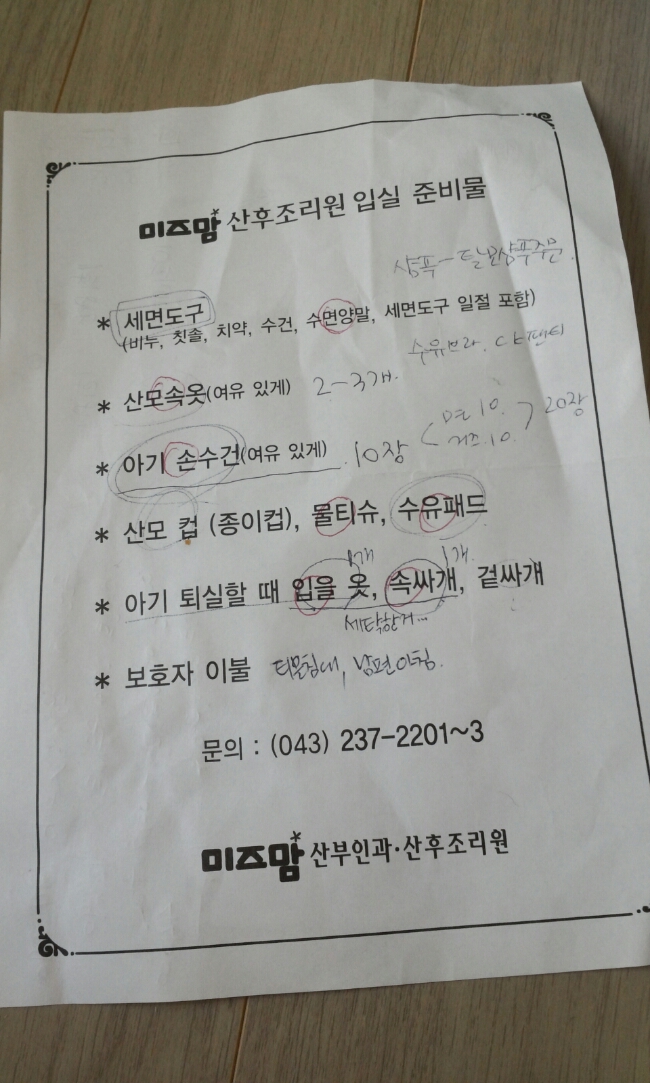 미즈맘* 산후조리원 입실 준비물
샴푸-탈모샴푸주문.
* 세면도구
(비누, 칫솔, 치약, 수건, 수면양말, 세면도구 일절 포함)
수유브라. ck팬티
* 산모속옷(여유 있게) 2-3개.
* 아기 손수건(여유 있게). 10장 < 면 10. 거즈.10. > 20장
* 산모 컵 (종이컵), 물티슈, 수유패드
1개 1개.
* 아기 퇴실할 때 입을 옷, 속싸개, 겉싸개
세탁한거...
* 보호자 이불 남편아침.
문의 : (043) 237-2201~3
미즈맘* 산부인과·산후조리원